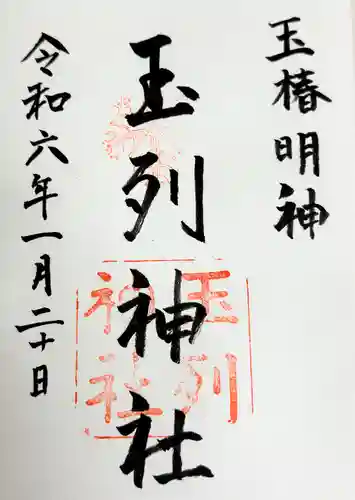 玉椿明神
玉列神社
玉列
神社
令和六年一月二十日